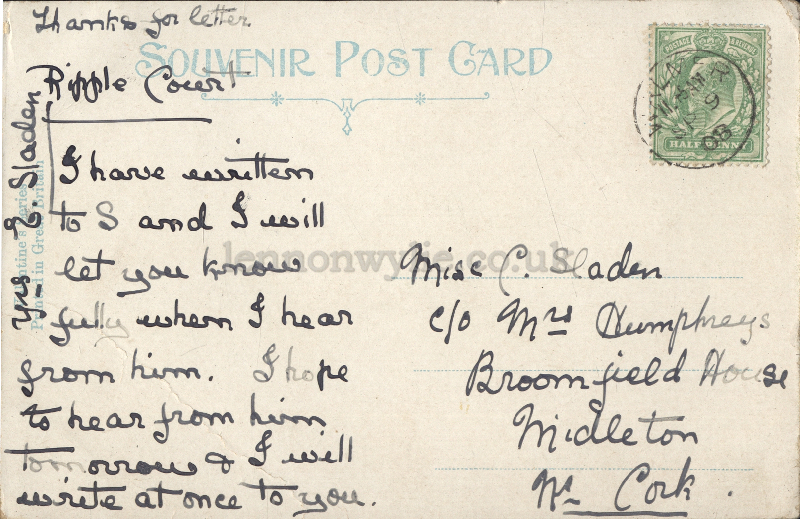 Thanks for letter
SOUVENIR POST CARD
Ripple Court
I have written
to S and I will
let you know
fully when I hear
from him. I hope
to hear from him
tomorrow & I will
write at once to you.
Yrs. E. Sladen
Valentine's Series
Printed in Great Britain
POSTAGE & REVENUE
HALFPENNY
SP 9
08
Miss C. Sladen
c/o Mrs Humphreys
Broomfield House
Midleton
Nr Cork.
lennonwylie.co.uk